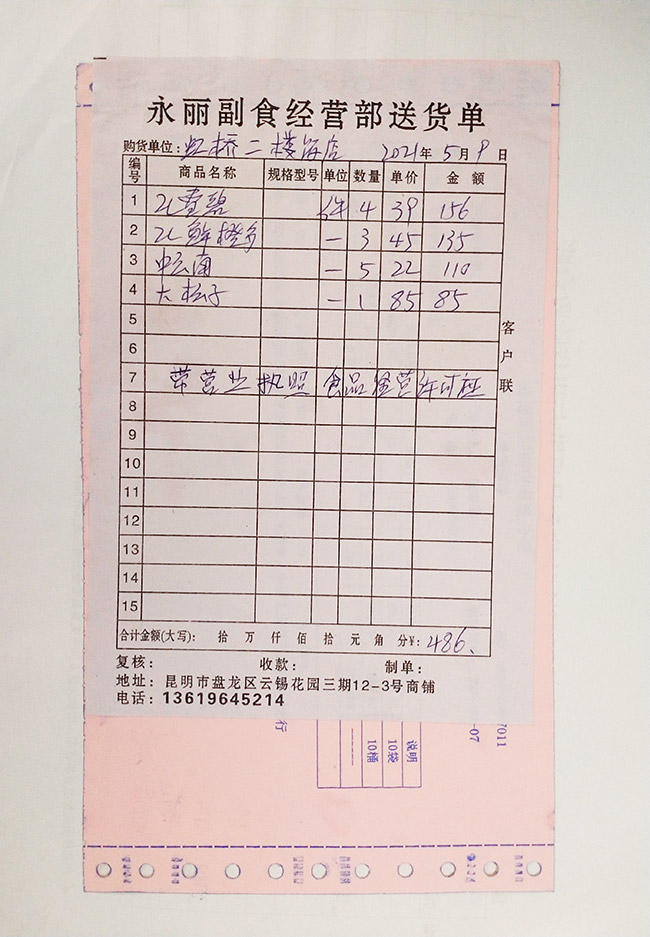 永丽副食经营部送货单
购货单位：虹桥二楼饭店 2021年5月9日
编号 商品名称 规格型号 单位 数量 单价 金额
1 2L雪碧 件 4 39 156
2 2L鲜橙多 — 3 45 135
3 中云南 — 5 22 110
4 大松子 — 1 85 85
5
6
7 带营业执照 食品经营许可证
8
9
10
11
12
13
14
15
客户联
合计金额(大写)： 拾 万 仟 佰 拾 元 角 分¥：486.
复核： 收款： 制单：
地址：昆明市盘龙区云锡花园三期12-3号商铺
电话：13619645214
行
说明
10袋
10桶
7011
-07